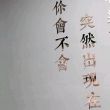 你會不會
突然出現在